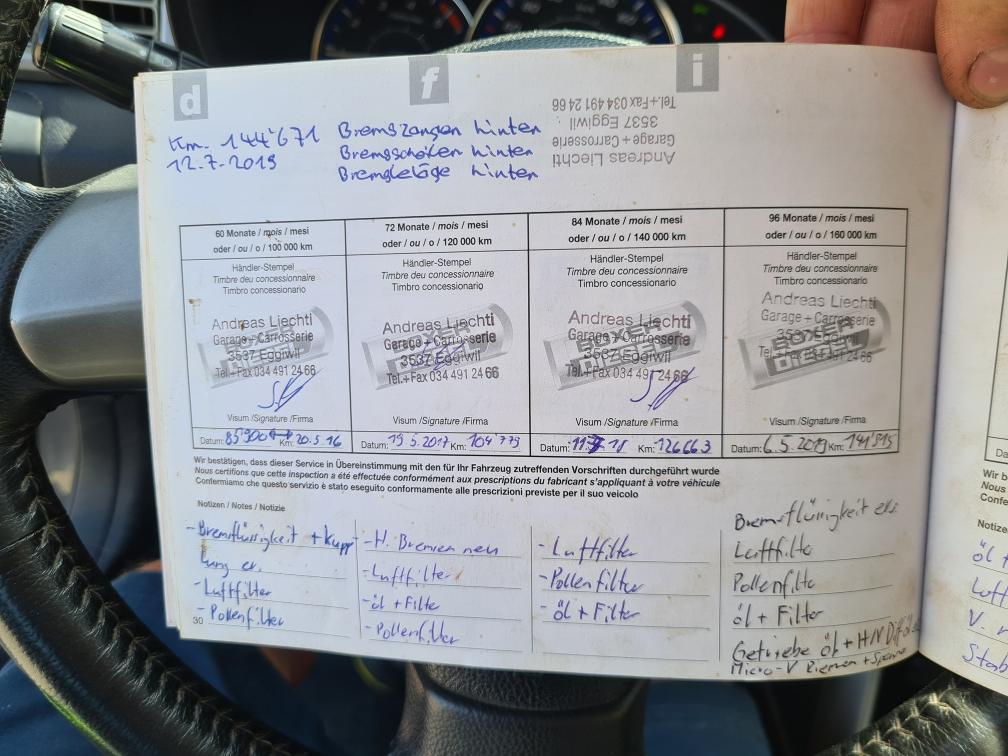 d f i
Km. 144'671 Bremszangen hinten
12.7.2019 Bremsscheiben hinten
Bremsbeläge hinten
Andreas Liechti
Garage + Carrosserie
3537 Eggiwil
Tel.+Fax 034 491 24 66
60 Monate / mois / mesi
oder / ou / o / 100 000 km
Händler-Stempel
Timbre deu concessionnaire
Timbro concessionario
Andreas Liechti
Garage+Carrosserie
3537 Eggiwil
Tel.+Fax 034 491 24 66
BOXER DIESEL
Visum /Signature /Firma
Datum: 85900 Km: 20.5.16
72 Monate / mois / mesi
oder / ou / o / 120 000 km
Händler-Stempel
Timbre deu concessionnaire
Timbro concessionario
Andreas Liechti
Garage+Carrosserie
3537 Eggiwil
Tel.+Fax 034 491 24 66
BOXER DIESEL
Visum /Signature /Firma
Datum: 19.5.2017 Km: 104'779
84 Monate / mois / mesi
oder / ou / o / 140 000 km
Händler-Stempel
Timbre deu concessionnaire
Timbro concessionario
Andreas Liechti
Garage+Carrosserie
3537 Eggiwil
Tel.+Fax 034 491 24 66
BOXER DIESEL
Visum /Signature /Firma
Datum: 18 Km: 126663
96 Monate / mois / mesi
oder / ou / o / 160 000 km
Händler-Stempel
Timbre deu concessionnaire
Timbro concessionario
Andreas Liechti
Garage + Carrosserie
3537 Eggiwil
Tel.+Fax 034 491 24 66
BOXER DIESEL
Visum /Signature /Firma
Datum: 6.5.2019 Km: 141'515
Wir bestätigen, dass dieser Service in Übereinstimmung mit den für Ihr Fahrzeug zutreffenden Vorschriften durchgeführt wurde
Nous certifions que cette inspection a été effectuée conformément aux prescriptions du fabricant s'appliquant à votre véhicule
Confermiamo che questo servizio è stato eseguito conformamente alle prescrizioni previste per il suo veicolo
Notizen / Notes / Notizie
- Bremsflüssigkeit + Kupp
lung er.
- Luftfilter
- Pollenfilter
- H. Bremsen neu
- Luftfilter
- öl + Filter
- Pollenfilter
- Luftfilter
- Pollenfilter
- öl + Filter
Bremsflüssigkeit ers.
Luftfilter
Pollenfilter
öl + Filter
Getriebe öl + H/V Diff
Micro-V Riemen +
30
Da
Wir b
Nous
Confe
Notize
öl +
Luft
V.
Stab